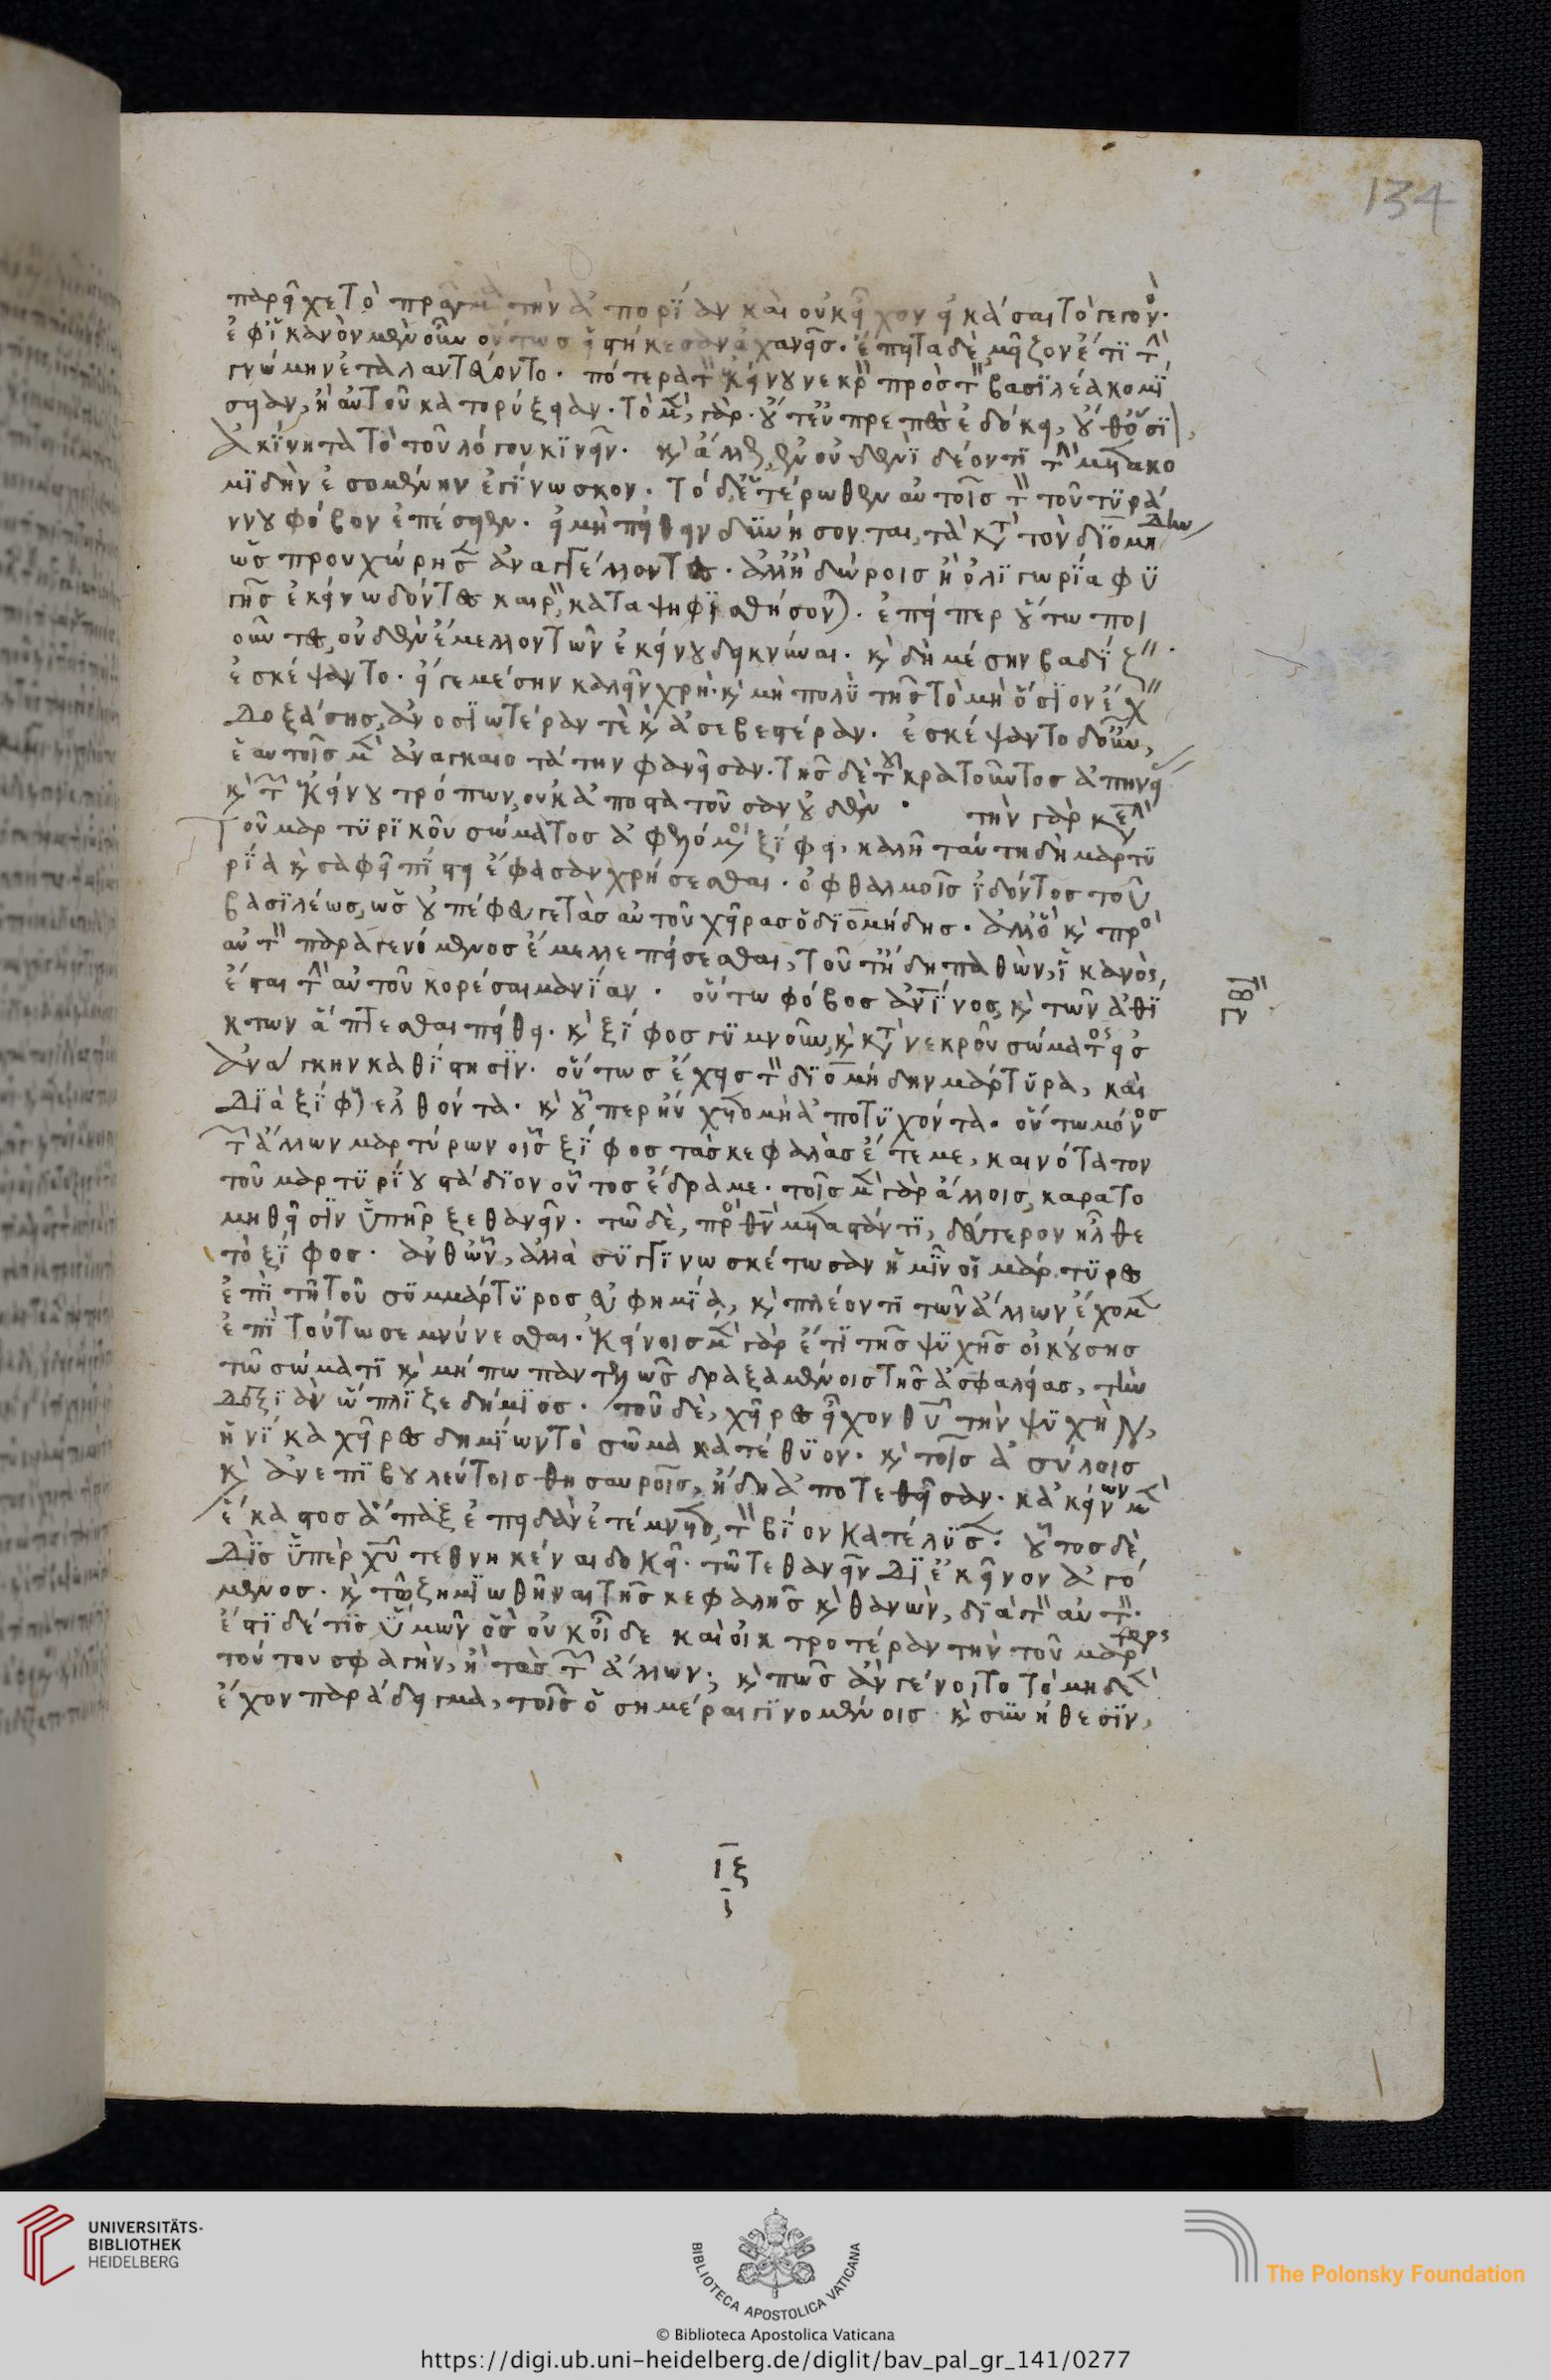 134
παρεῖχε τὸ πρᾶγμα τὴν ἀπορίαν καὶ οὐκ εἶχον εἰκάσαι τὸ γεγονὸς.
ἐφ' ἱκανὸν μὲν οὖν οὕτως εἱστήκεσαν ἀχανεῖς. ἔπειτα δὲ μεῖζον ἔτι τὴν
γνώμην ἐταλαντεύοντο. πότερα τὸν ἐκείνου νεκρὸν πρὸς τὸν βασιλέα κομί
σειαν, ἢ αὐτοῦ κατορύξειαν. τὸ μὲν γὰρ οὔτ' εὐπρεπὲς ἐδόκει, οὔθ' ὅσι
ἀκίνητα τὸ τοῦ λόγου κινεῖν. καὶ ἄλλως, ἐν οὐδενὶ δέοντι τὴν μετακο
μιδὴν ἐσομένην ἐγίνωσκον. τὸ δ' ἑτέρωθεν αὐτοῖς τὸν τοῦ τυρά
ννου φόβον ἐπέσειεν. εἰ μὴ πείθειν δυνήσονται, τὰ κατὰ τὸν διομήδην
ὡς προυχώρησεν ἀναγγέλλοντες. ἀλλ' ἢ δώροις ἢ ὀλιγωρία φυ
γῆς ἐκείνω δόντες καιρὸν, καταψηφισθήσονται. ἐπείπερ οὕτω ποι
οῦντες, οὐδὲν ἔμελλον τῶν ἐκείνου δεικνύναι. καὶ δὴ μέσην βαδίζειν
ἐσκέψαντο. εἴγε μέσην καλεῖν χρὴ. καὶ μὴ πολὺ τῆς τὸ μὴ ὅσιον ἔχειν
δοξάσης, ἀνοσιωτέραν τὲ καὶ ἀσεβεστέραν. ἐσκέψαντο δ' οὖν,
ἑαυτοῖς μὲν ἀναγκαιοτάτην φανεῖσαν. τῆς δὲ τοῦ κρατοῦντος ἀπηνεί
καὶ τῶν ἐκείνου τρόπων, οὐκ ἀποστατοῦσαν οὐδὲν. τὴν γὰρ κεφαλὴν
τοῦ μαρτυρικοῦ σώματος ἀφελόμενοι ξίφει, καλῆ ταύτη δὴ μαρτυ
ρία καὶ σαφεῖ πίστει ἔφασαν χρήσεσθαι. ὀφθαλμοῖς ἰδόντος τοῦ
βασιλέως, ὡς οὐ πέφευγε τὰς αὐτοῦ χεῖρας ὁ διομήδης. ἀλλ' ὃ καὶ πρὸς
αὐτὸν παραγενόμενος ἔμελλε πείσεσθαι, τοῦτ' ἤδη παθὼν, ἱκανὸς
ἔσται τὴν αὐτοῦ κορέσαι μανίαν. οὕτω φόβος ἀνθρώπινος, καὶ τῶν ἀθί
κτων ἅπτεσθαι πείθει. καὶ ξίφος γυμνοῦν, καὶ κατὰ νεκροῦ σώματος εἰς
ἀνάγκην καθίστησιν. οὕτως ἔχεις τὸν διομήδην μάρτυρα, καὶ
διὰ ξίφους ἐλθόντα. καὶ οὗπερ ηὔχετο μὴ ἀποτυχόντα. οὕτω μόνος
τῶν ἄλλων μαρτύρων οἷς ξίφος τὰς κεφαλὰς ἔτεμε, καινότατον
τοῦ μαρτυρίου στάδιον οὗτος ἔδραμε. τοῖς μὲν γὰρ ἄλλοις, καρατο
μηθεῖσιν ὑπῆρξε θανεῖν. τῶ δὲ, πρὸς θεὸν μεταστάντι, δεύτερον ἦλθε
τὸ ξίφος. ἀνθ' ὧν, ἀλλὰ συγγινωσκέτωσαν ἡμῖν οἱ μάρτυρες
ἐπὶ τῆ τοῦ συμμάρτυρος εὐφημία, καὶ πλέον τι τῶν ἄλλων ἔχομεν
ἐπὶ τούτω σεμνύνεσθαι. ἐκείνοις μὲν γὰρ ἔτι τῆς ψυχῆς οἰκούσης
τῶ σώματι καὶ μήπω παντελῶς δραξαμένοις τῆς ἀσφαλείας, τὴν
δεξιὰν ὥπλιξε δήμιος. τοῦ δὲ, χεῖρες εἶχον θεοῦ τὴν ψυχὴν,
ἡνίκα χεῖρες δημίων τὸ σῶμα κατέθυον. καὶ τοῖς ἀσύλοις
καὶ ἀνεπιβουλεύτοις θησαυροῖς, ἤδη ἀποτεθεῖσαν. κἀκείνων μὲν
ἕκαστος ἅπαξ ἐπειδὰν ἐτέμνετο, τὸν βίον κατέλυσεν. οὗτος δὲ
δὶς ὑπὲρ χριστοῦ τεθνηκέναι δοκεῖ. τῶ τε θανεῖν δι' ἐκεῖνον ἀγό
μενος. καὶ τῶ ζημιωθῆναι τῆς κεφαλῆς καὶ θανὼν, διὰ τὸν αὐτὸν.
ἔστι δέ τις ὑμῶν ὃς οὐκ οἶδε καὶ οἰκτροτέραν τὴν τοῦ μάρτυρος
τούτου σφαγὴν, ἢ τὰς τῶν ἄλλων; καὶ πῶς ἂν γένοιτο τὸ μηδὲν
ἔχον παράδειγμα, τοῖς ὁσημέραι γινομένοις καὶ συνήθεσιν,
UNIVERSITÄTS-
BIBLIOTHEK
HEIDELBERG
BIBLIOTECA APOSTOLICA VATICANA
The Polonsky Foundation
© Biblioteca Apostolica Vaticana
https://digi.ub.uni-heidelberg.de/diglit/bav_pal_gr_141/0277